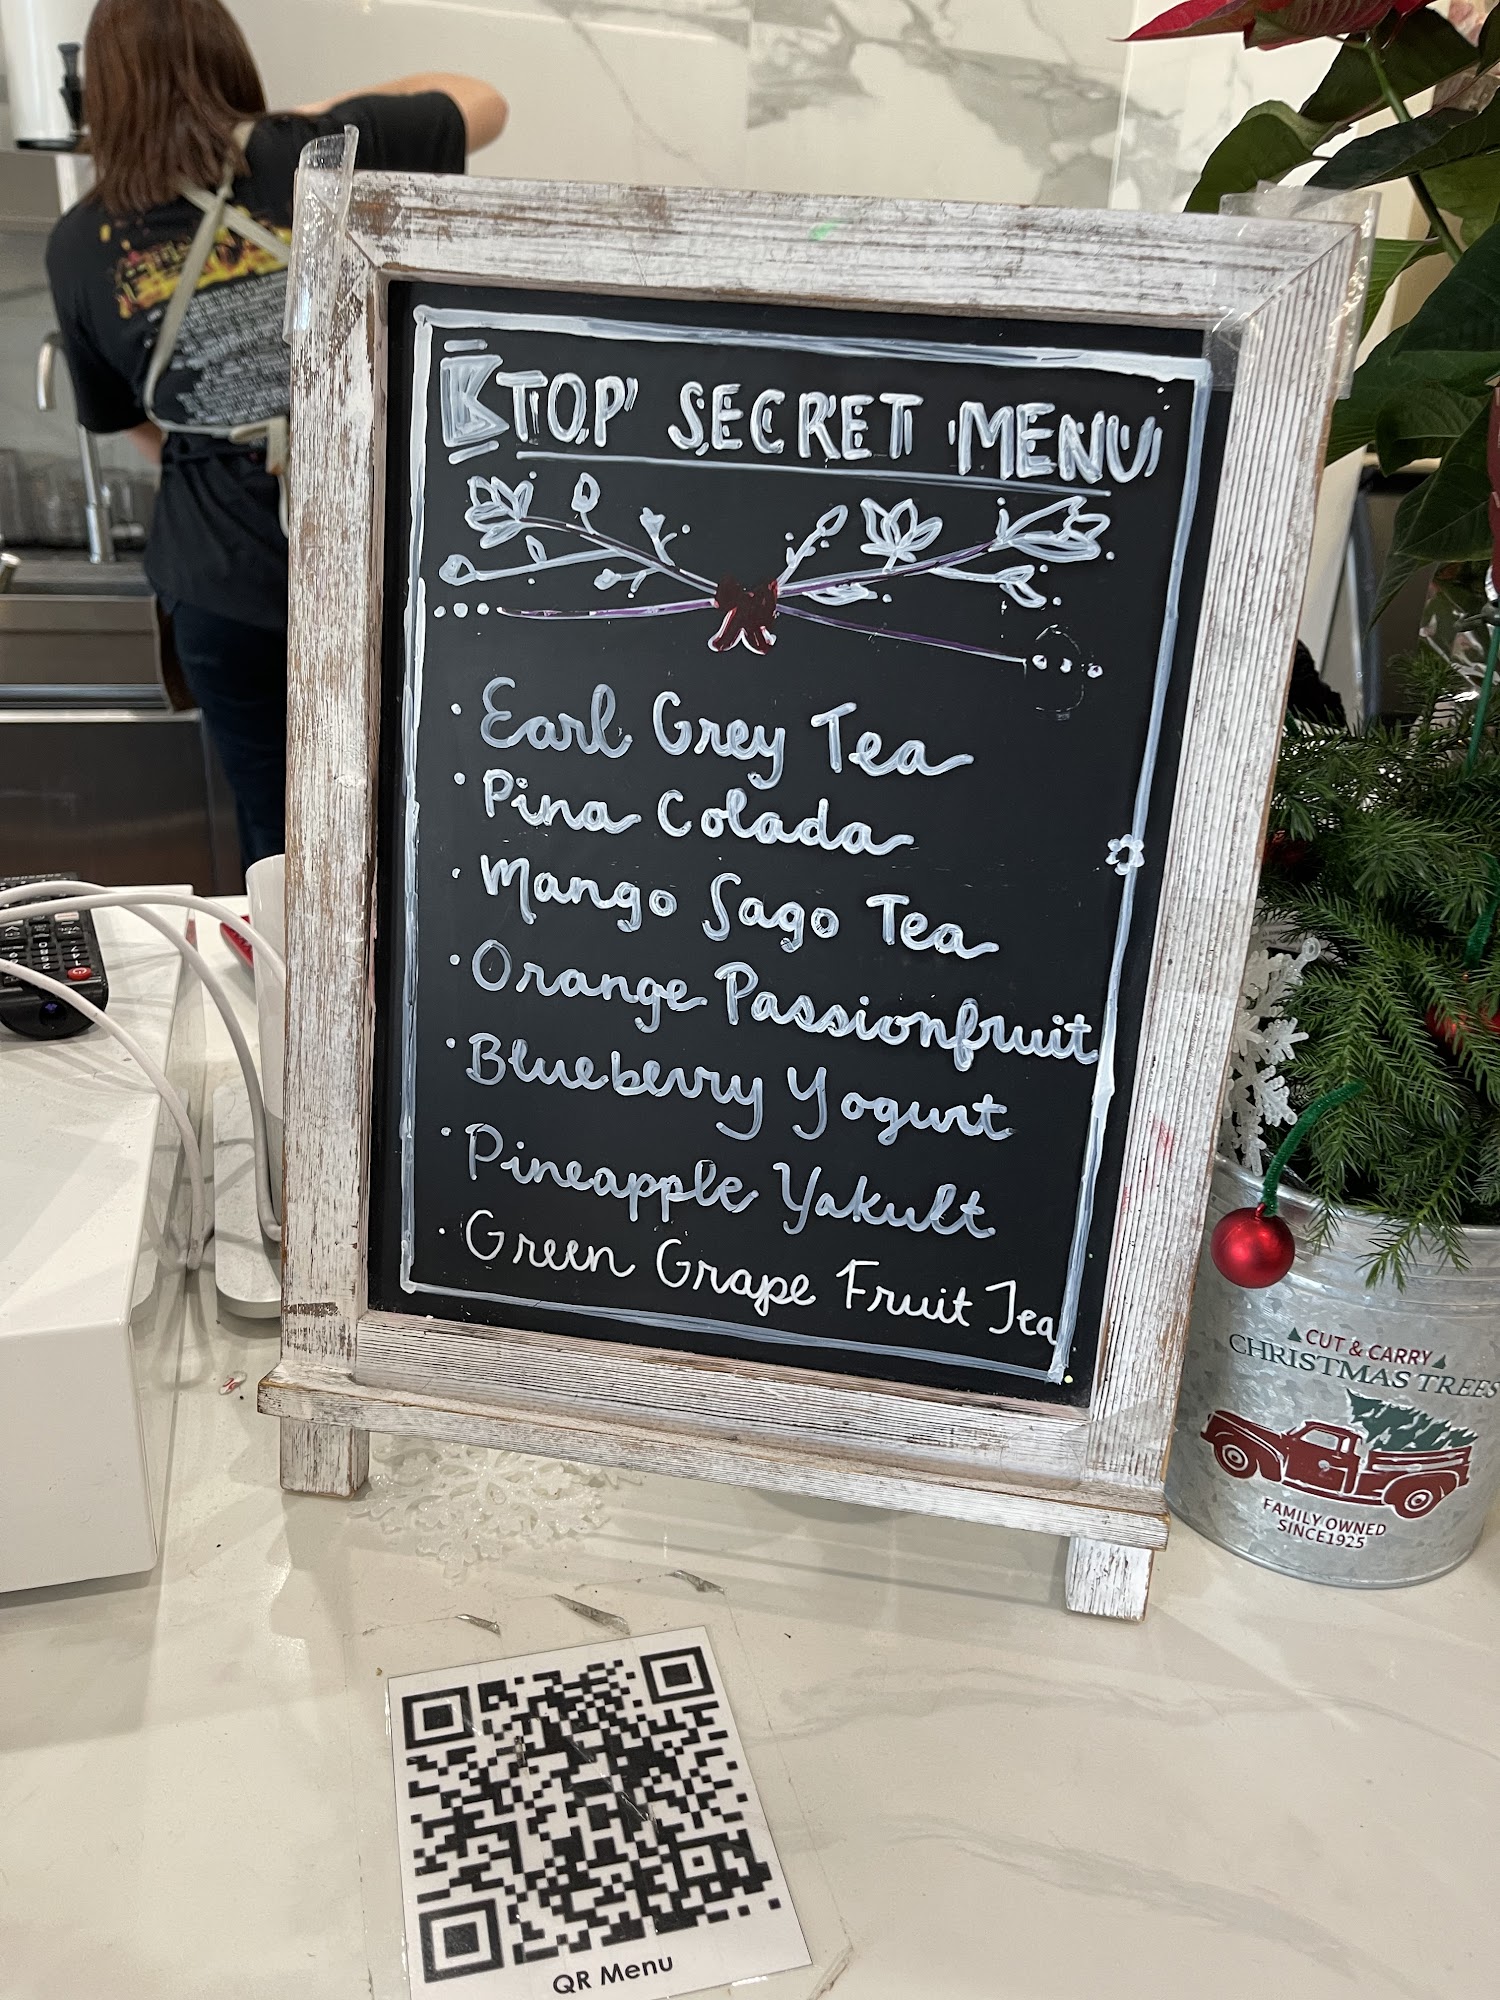 TOP SECRET MENU
Earl Grey Tea
Pina Colada
Mango Sago Tea
Orange Passionfruit
Blueberry Yogurt
Pineapple Yakult
Green Grape Fruit Tea
CUT & CARRY
CHRISTMAS TREES
FAMILY OWNED
SINCE 1925
QR Menu